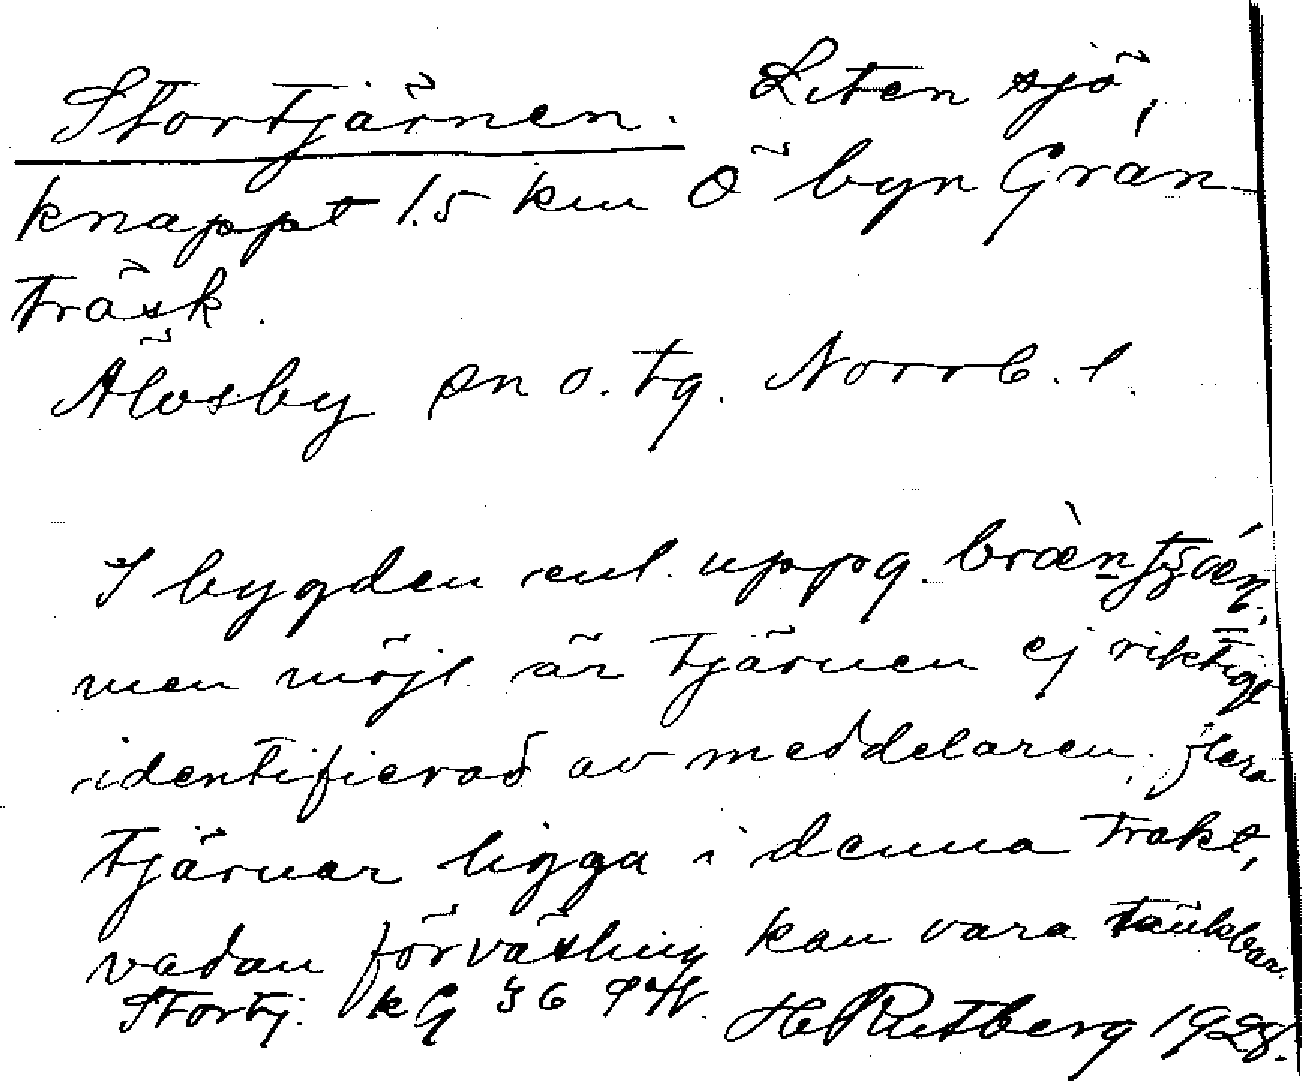 Stortjärnen. Liten sjö,
knappt 1.5 km Ö byn Grän-
träsk.
Älvsby sn o. tg. Norrb. l.
I bygden enl. uppg.
men möjl. är tjärnen ej riktigt
identifierad av meddelaren, flera
tjärnar ligga i denna trakt,
vadan förväxling kan vara tänkbar.
Stortj. kG 36
H Rutberg 1928.